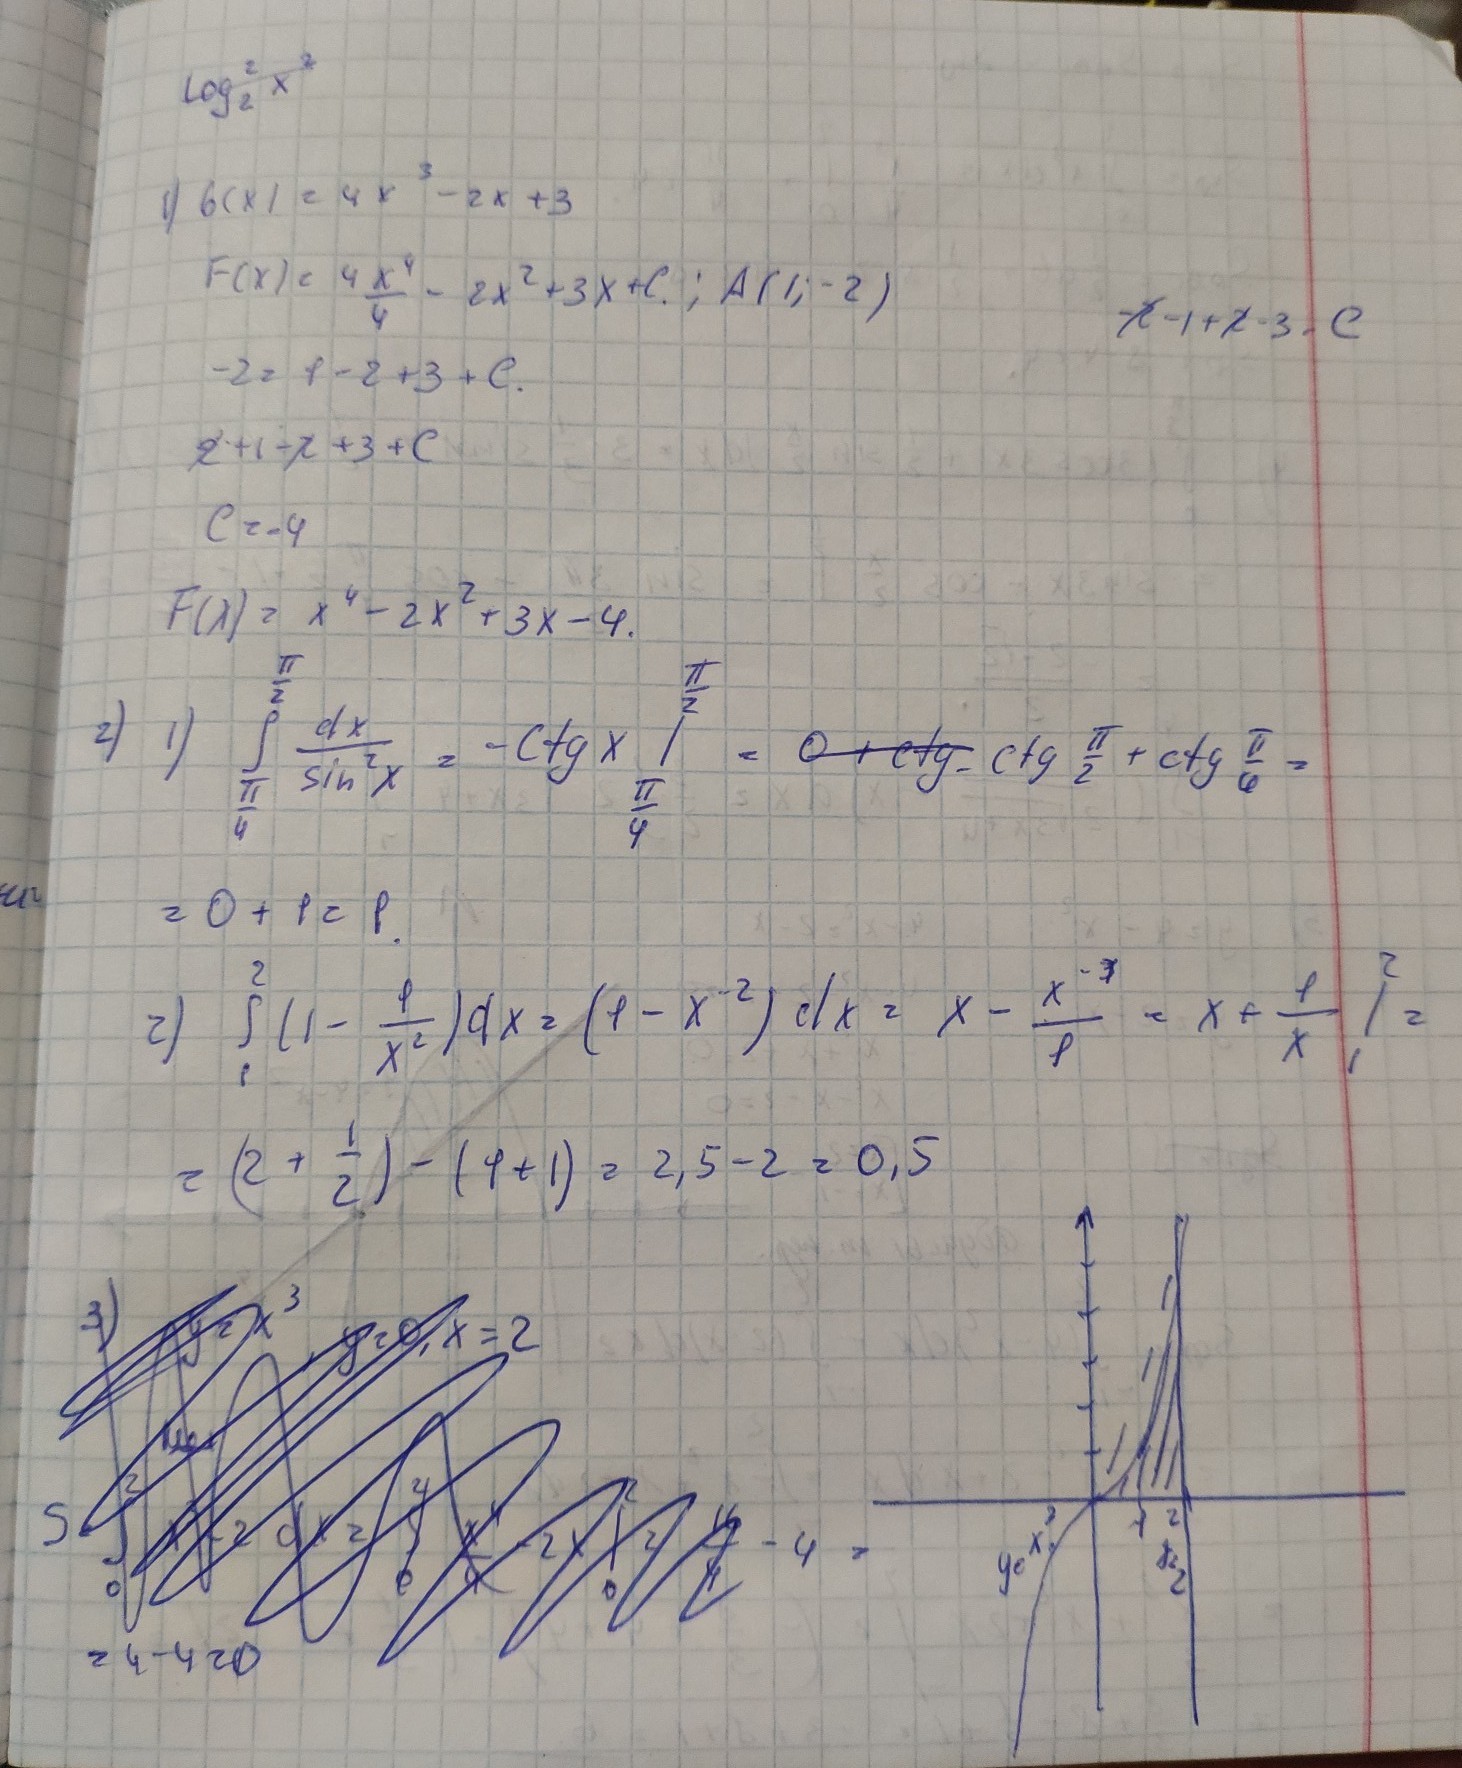 Log₂² x²
1) б(x) = 4x³ - 2x + 3
F(x) = 4 x⁴/4 - 2x² + 3x + C. ; A(1; -2)
-2 - 1 + 2 - 3 = C
-2 = 1 - 2 + 3 + C.
2 + 1 - 2 + 3 + C
C = -4
F(x) = x⁴ - 2x² + 3x - 4.
2) 1) ∫_{π/4}^{π/2} dx/sin²x = -ctg x |_{π/4}^{π/2} = 0 + ctg - ctg π/2 + ctg π/6 =
= 0 + 1 = 1.
2) ∫_1^2 (1 - 1/x²) dx = (1 - x⁻²) dx = x - x⁻¹/1 = x + 1/x |_1^2 =
= (2 + 1/2) - (1 + 1) = 2,5 - 2 = 0,5
3) y = x³, y = 0, x = 2
- 4 =
= 4 - 4 = 0
1 2
y = x³
x=2